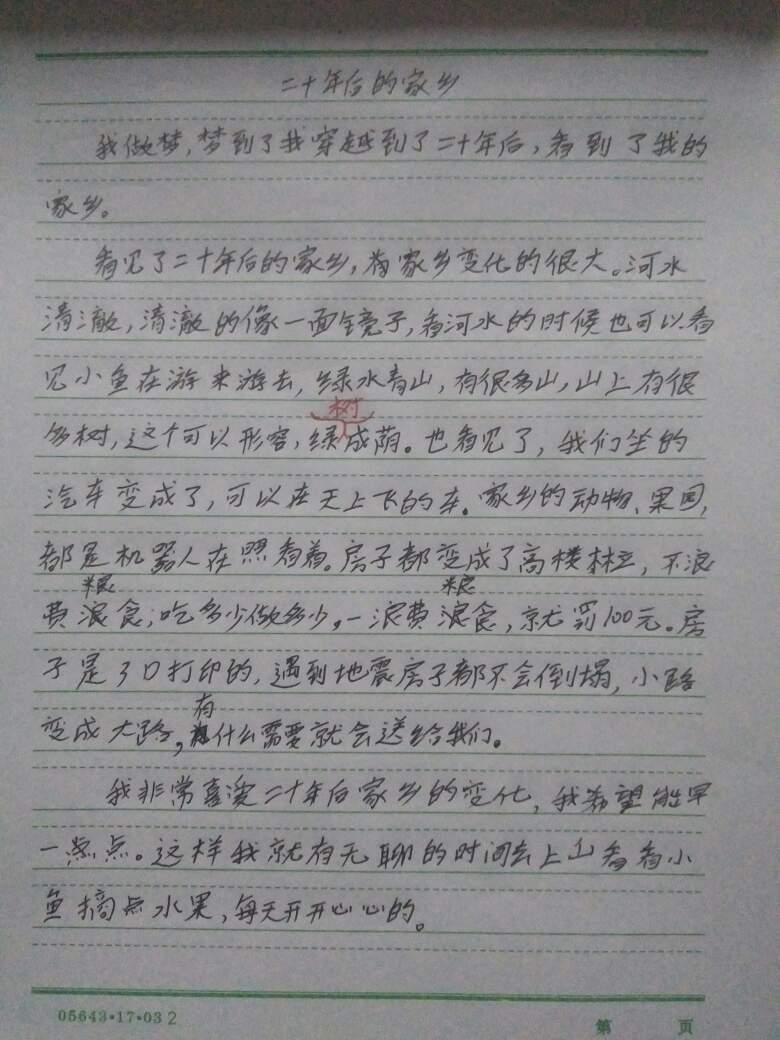 二十年后的家乡
我做梦,梦到了我穿越到了二十年后,看到了我的
家乡。
看见了二十年后的家乡,家乡变化的很大。河水
清澈,清澈的像一面镜子,看河水的时候也可以看
见小鱼在游来游去,绿水青山,有很多山,山上有很
树
多树,这个可以形容,绿成荫。也看见了,我们坐的
汽车变成了,可以在天上飞的车。家乡的动物、果园,
都是机器人在照看着。房子都变成了高楼林立,不浪
粮 粮
费食,吃多少做多少,一浪费食,就罚100元。房
子是3D打印的,遇到地震房子都不会倒塌,小路
有
变成大路,什么需要就会送给我们。
我非常喜爱二十年后家乡的变化,我希望能早
一点点。这样我就有无聊的时间去上山看看小
鱼摘点水果,每天开开心心的。
05643·17·032
第 页